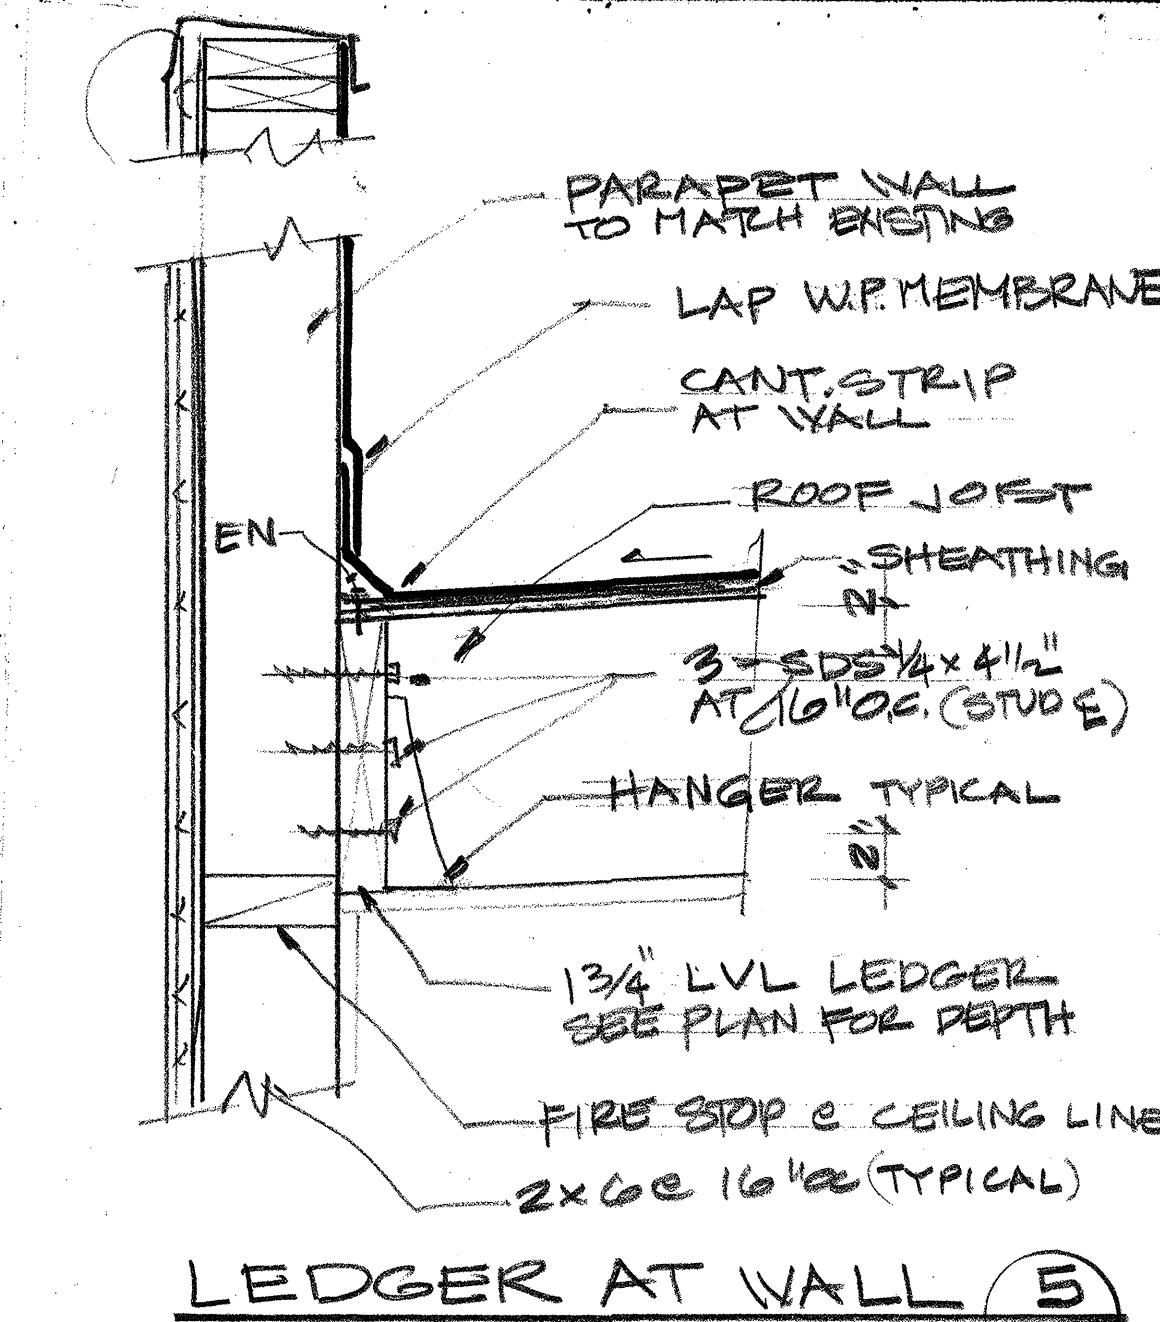 PARAPET WALL
TO MATCH EXISTING
LAP W.P. MEMBRANE
CANT. STRIP
AT WALL
ROOF JOIST
EN
SHEATHING
2"
3-SDS 1/4 x 4 1/2"
AT 16" O.C. (STUD ℄)
HANGER TYPICAL
2"
1 3/4" LVL LEDGER
SEE PLAN FOR DEPTH
FIRE STOP @ CEILING LINE
2x6 @ 16" oc (TYPICAL)
LEDGER AT WALL 5